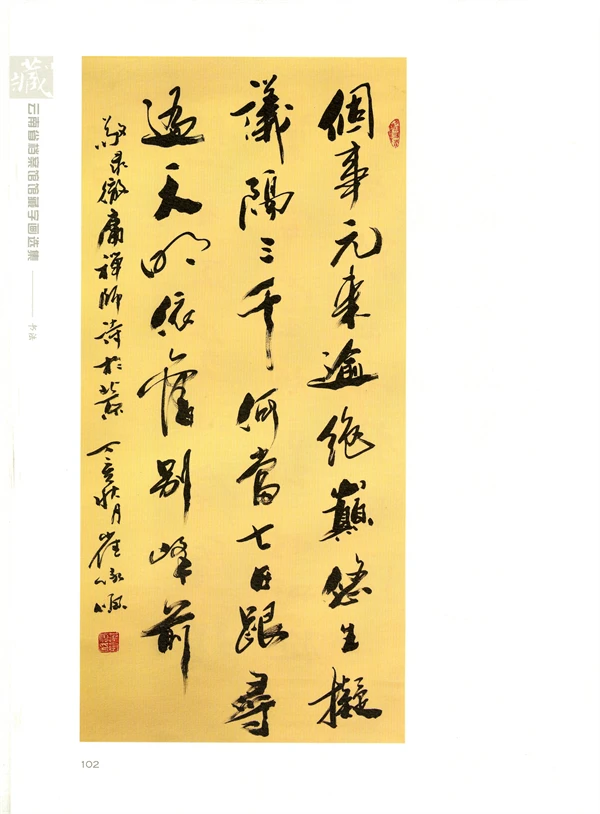 個事元来逾絶巔怎生擬
議隔三千何當七日跟尋
遍天明依舊別峰前
敬录徹庸禪師詩於 丁亥秋月崔
藏
云南省档案馆馆藏字画选集
书法
102